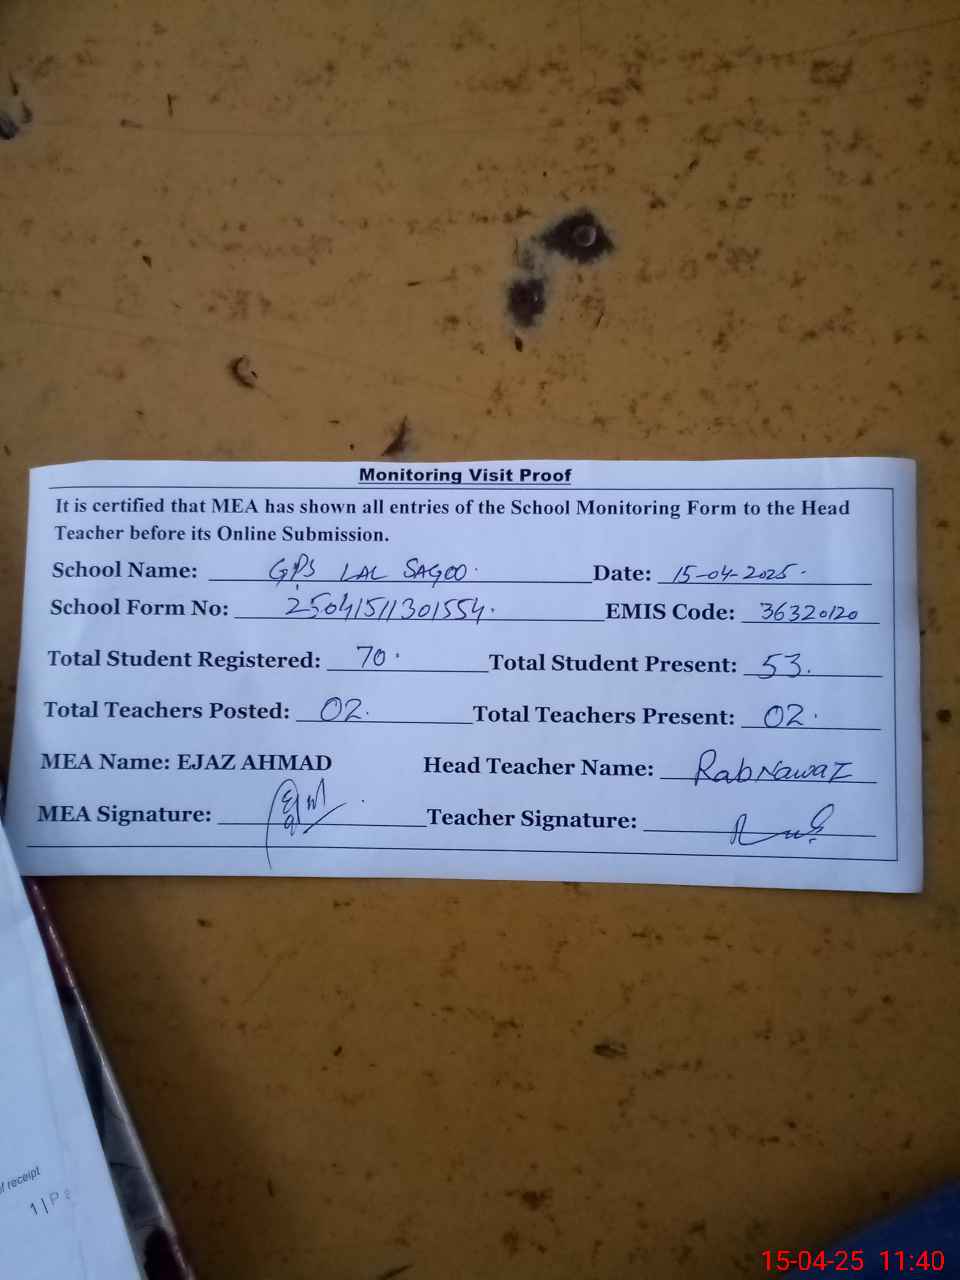 Monitoring Visit Proof
It is certified that MEA has shown all entries of the School Monitoring Form to the Head
Teacher before its Online Submission.
School Name: GPS LAL SAGOO. Date: 15-04-2025.
School Form No: 25041511301554. EMIS Code: 36320120
Total Student Registered: 70. Total Student Present: 53.
Total Teachers Posted: 02. Total Teachers Present: 02.
MEA Name: EJAZ AHMAD Head Teacher Name: Rab Nawaz
MEA Signature: Teacher Signature:
of receipt
1 | P
15-04-25 11:40